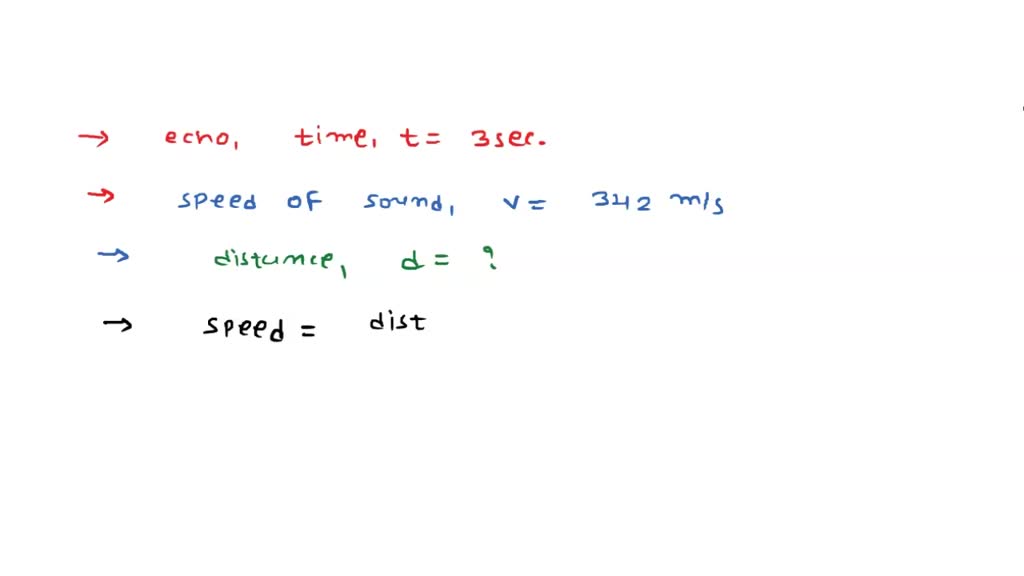 → echo, time, t = 3sec.
→ speed of sound, v = 342 m/s
→ distance, d = ?
→ speed = dist